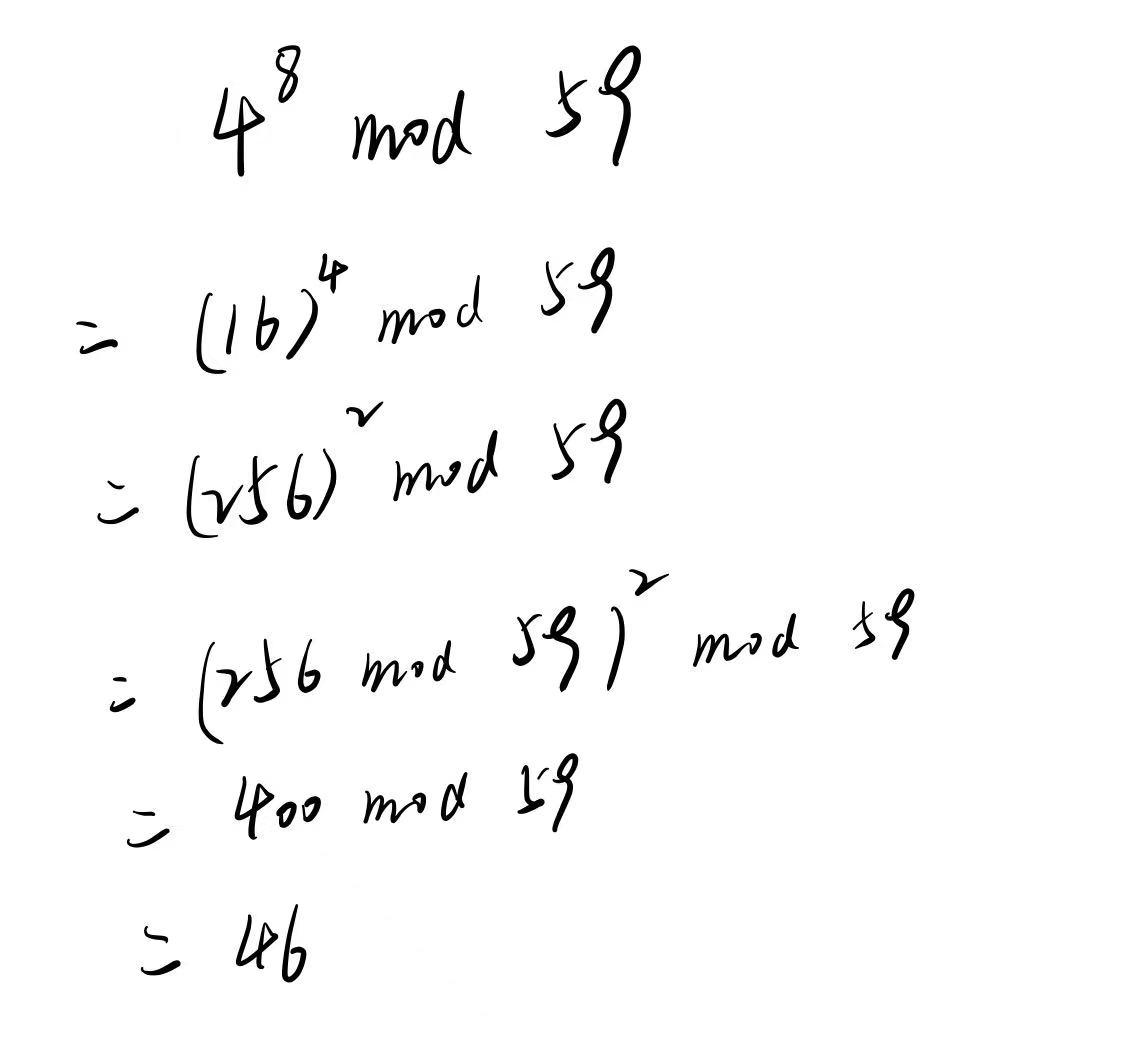 4⁸ mod 59
= (16)⁴ mod 59
= (256)² mod 59
= (256 mod 59)² mod 59
= 400 mod 59
= 46